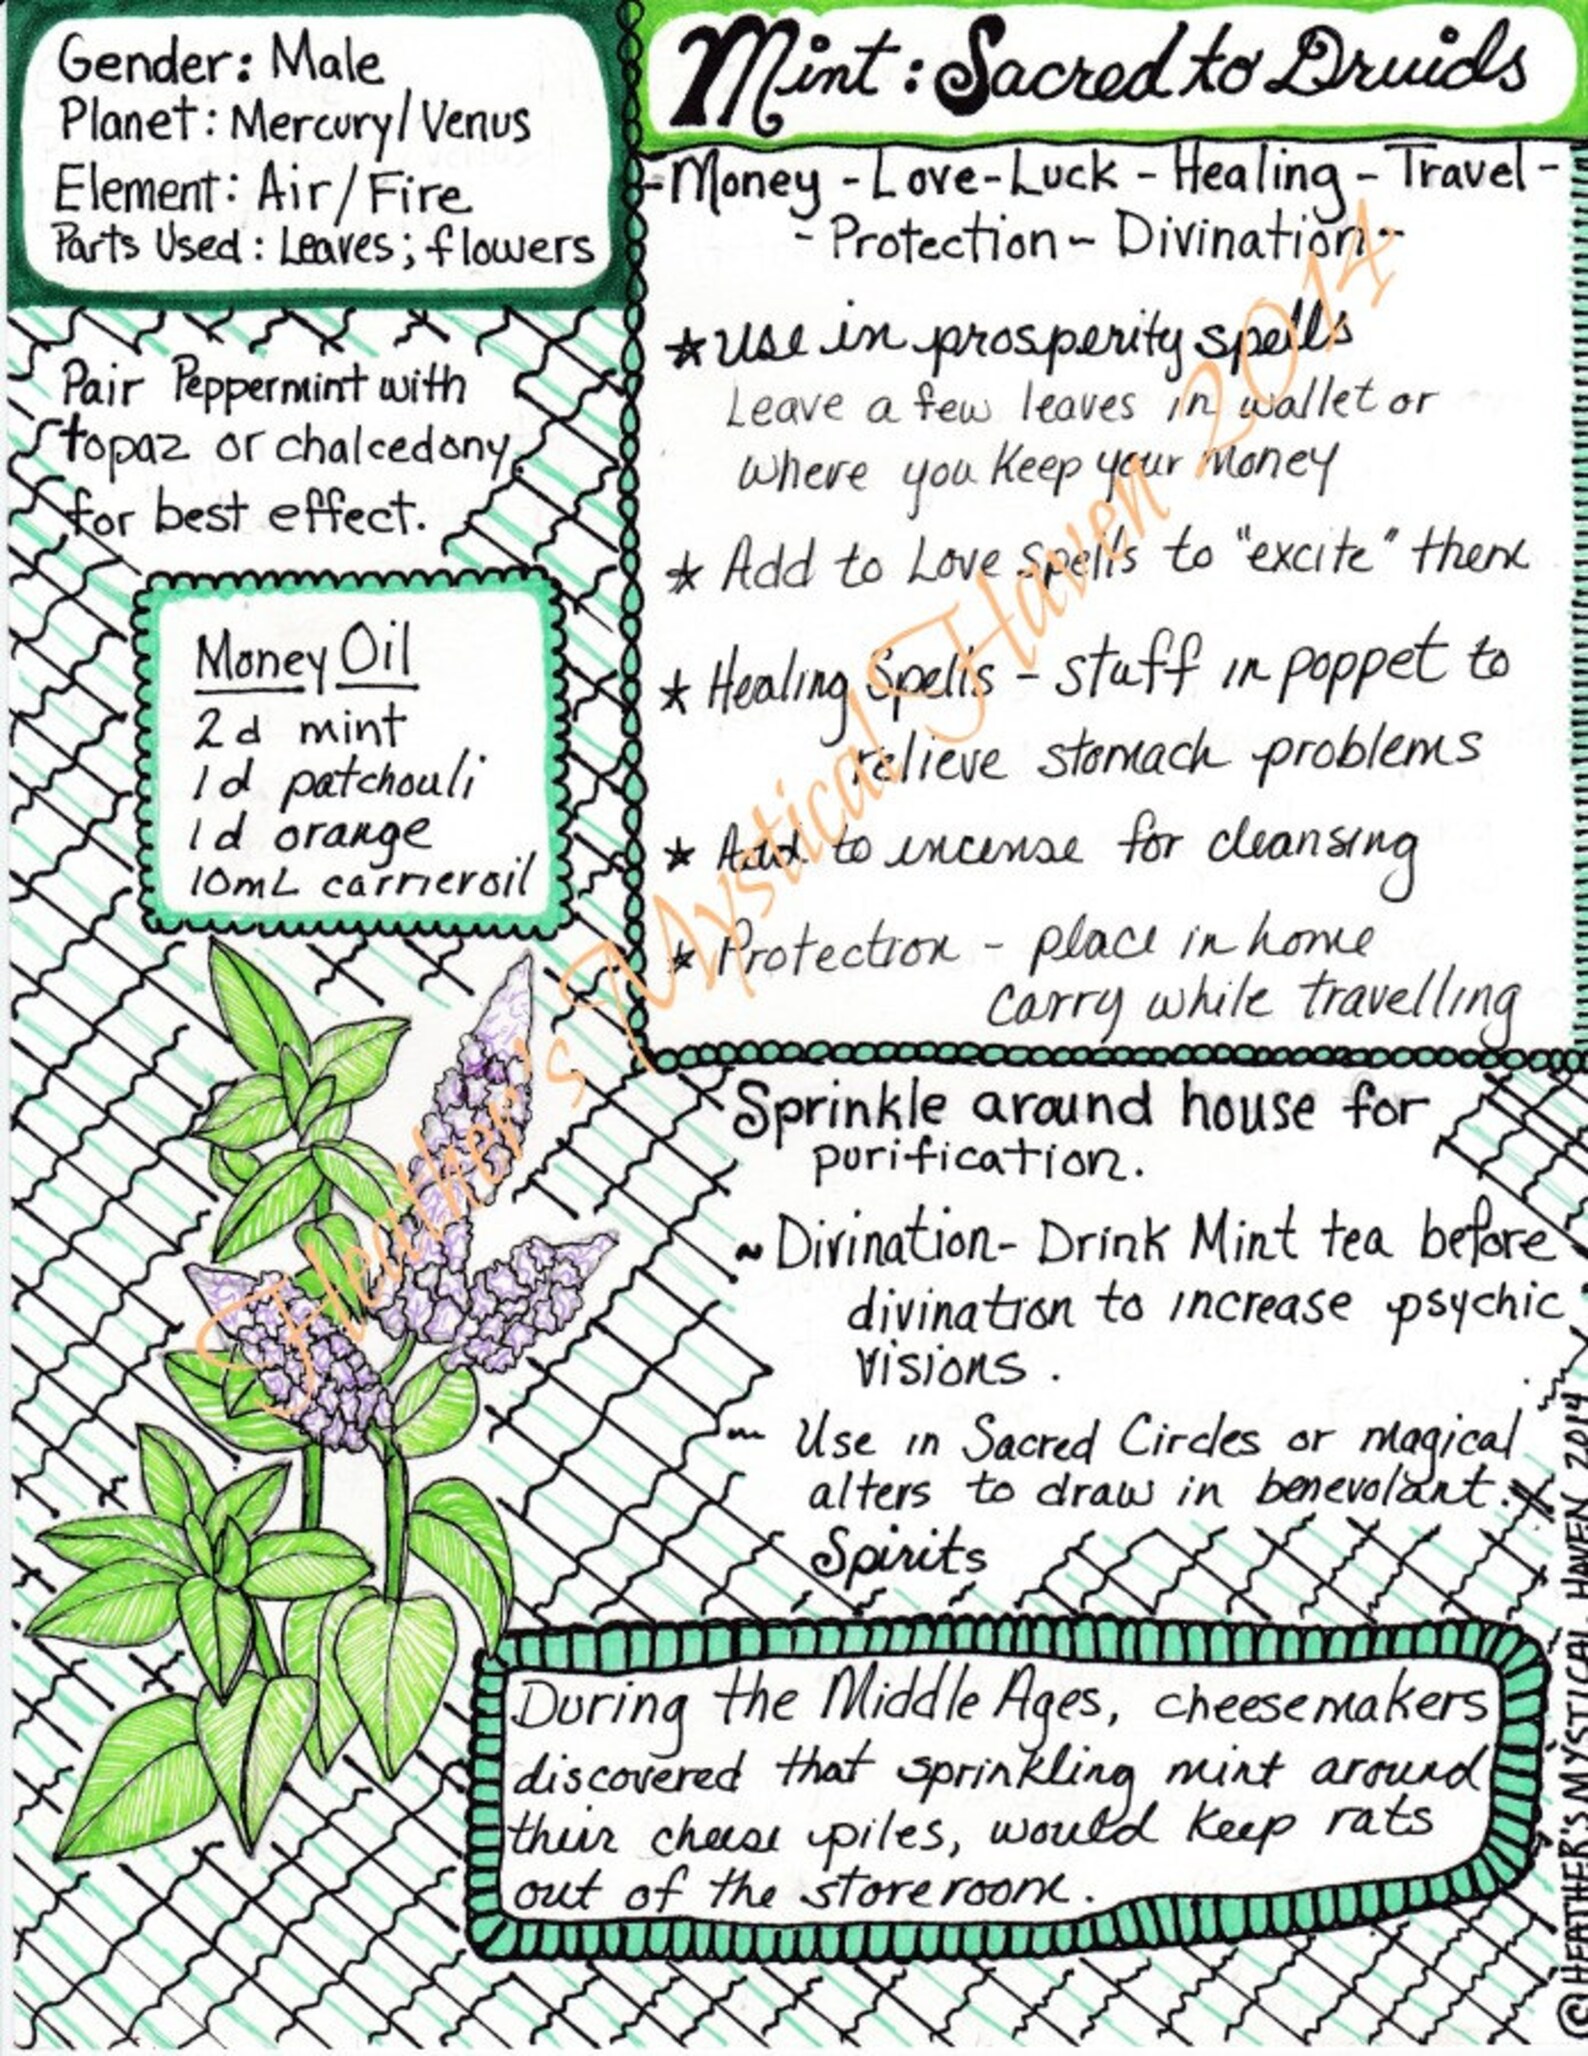 Gender: Male
Planet: Mercury/Venus
Element: Air/Fire
Parts Used: Leaves; flowers
Pair Peppermint with
topaz or chalcedony
for best effect.
Money Oil
2d mint
1d patchouli
1d orange
10mL carrier oil
Mint: Sacred to Druids
-Money -Love-Luck - Healing - Travel -
- Protection - Divination -
* Use in prosperity spells
Leave a few leaves in wallet or
where you keep your money
* Add to Love Spells to "excite" them
* Healing Spells - stuff in poppet to
relieve stomach problems
* Add to incense for cleansing
* Protection - place in home
carry while travelling
Sprinkle around house for
purification.
~ Divination- Drink Mint tea before
divination to increase psychic
visions.
~ Use in Sacred Circles or magical
alters to draw in benevolant.
Spirits
During the Middle Ages, cheesemakers
discovered that sprinkling mint around
their cheese piles, would keep rats
out of the storeroom.
Heather's Mystical Haven 2014
©HEATHER'S MYSTICAL HAVEN 2014